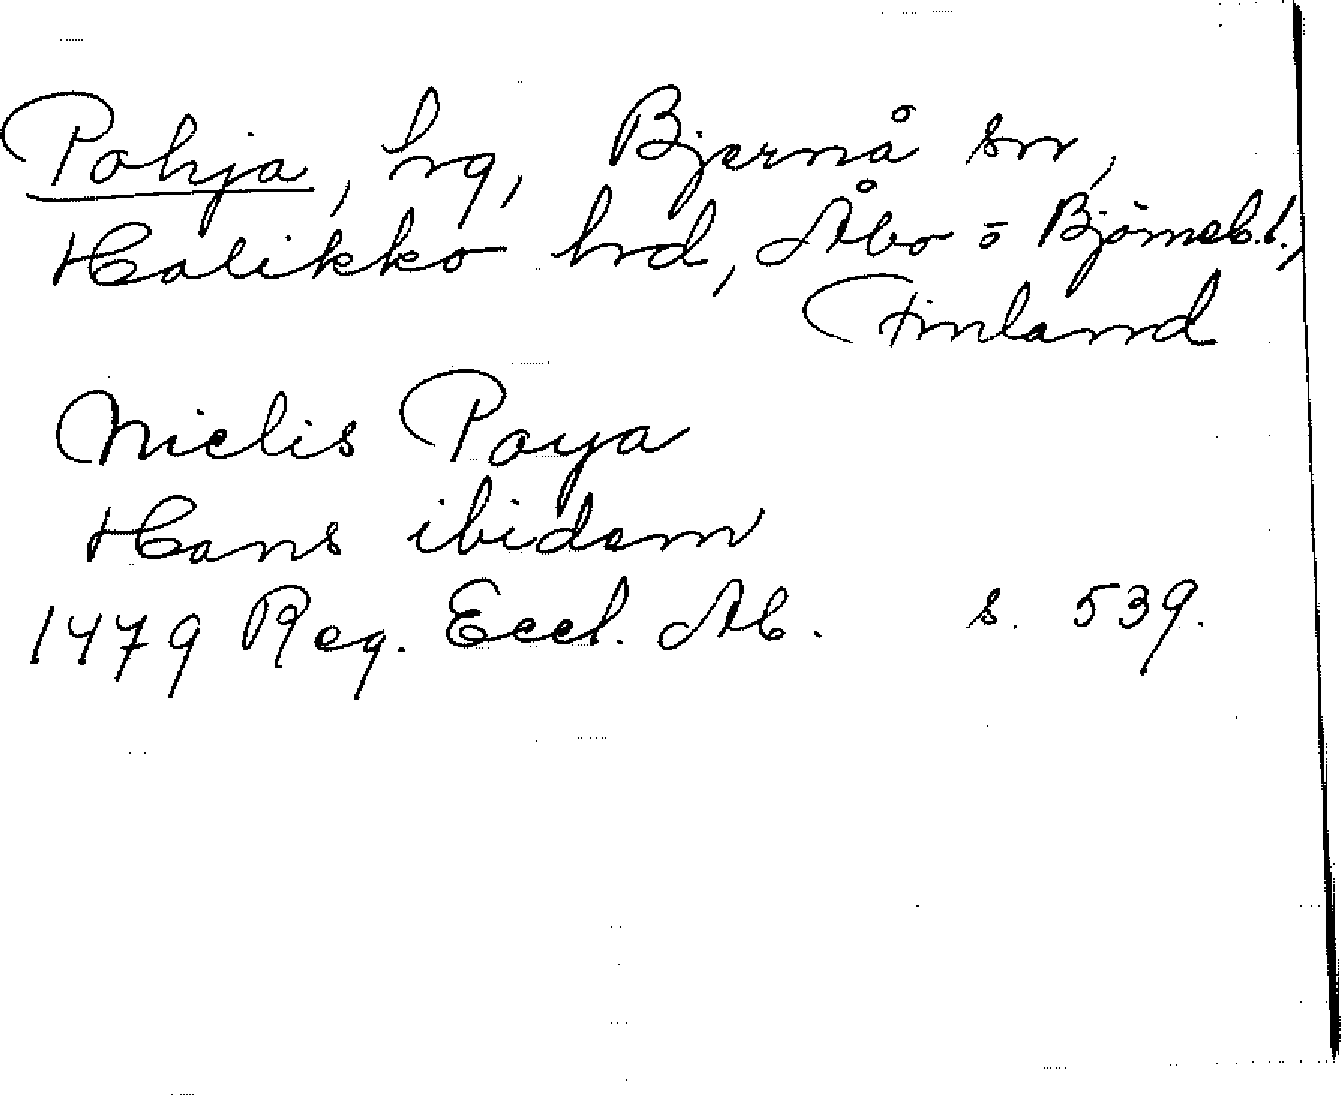 Pohja, hrg, Bjernå sn,
Halikko hrd, Åbo o Björneb.l.,
Finland
Nielis Poya
Hans ibidem
1479 Reg. Eccl. Ab. s. 539.